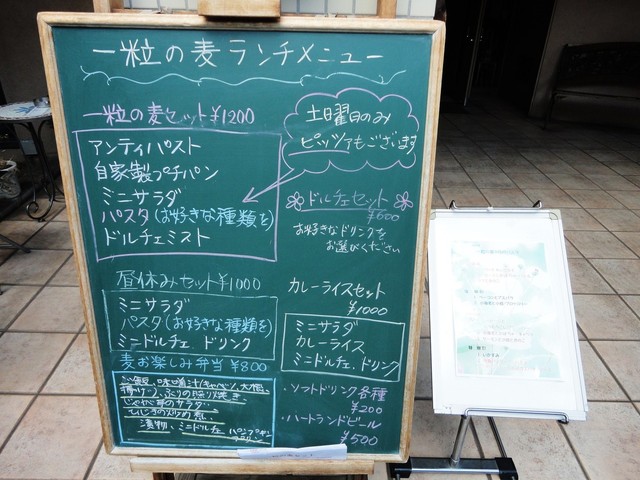 一粒の麦ランチメニュー
一粒の麦セット ¥1200
アンティパスト
自家製プチパン
ミニサラダ
パスタ(お好きな種類を)
ドルチェミスト
土曜日のみ
ピッツァもございます
ドルチェセット
¥600
お好きなドリンクを
お選びください
昼休みセット ¥1000
ミニサラダ
パスタ(お好きな種類を)
ミニドルチェ、ドリンク
カレーライスセット
¥1000
ミニサラダ
カレーライス
ミニドルチェ、ドリンク
麦お楽しみ弁当 ¥800
ご飯、味噌汁(キャベツ、大根、
じゃが芋のサラダ
ひじきの炒め煮
漬物、ミニドルチェ
・ソフトドリンク各種
¥200
・ハートランドビール
¥500